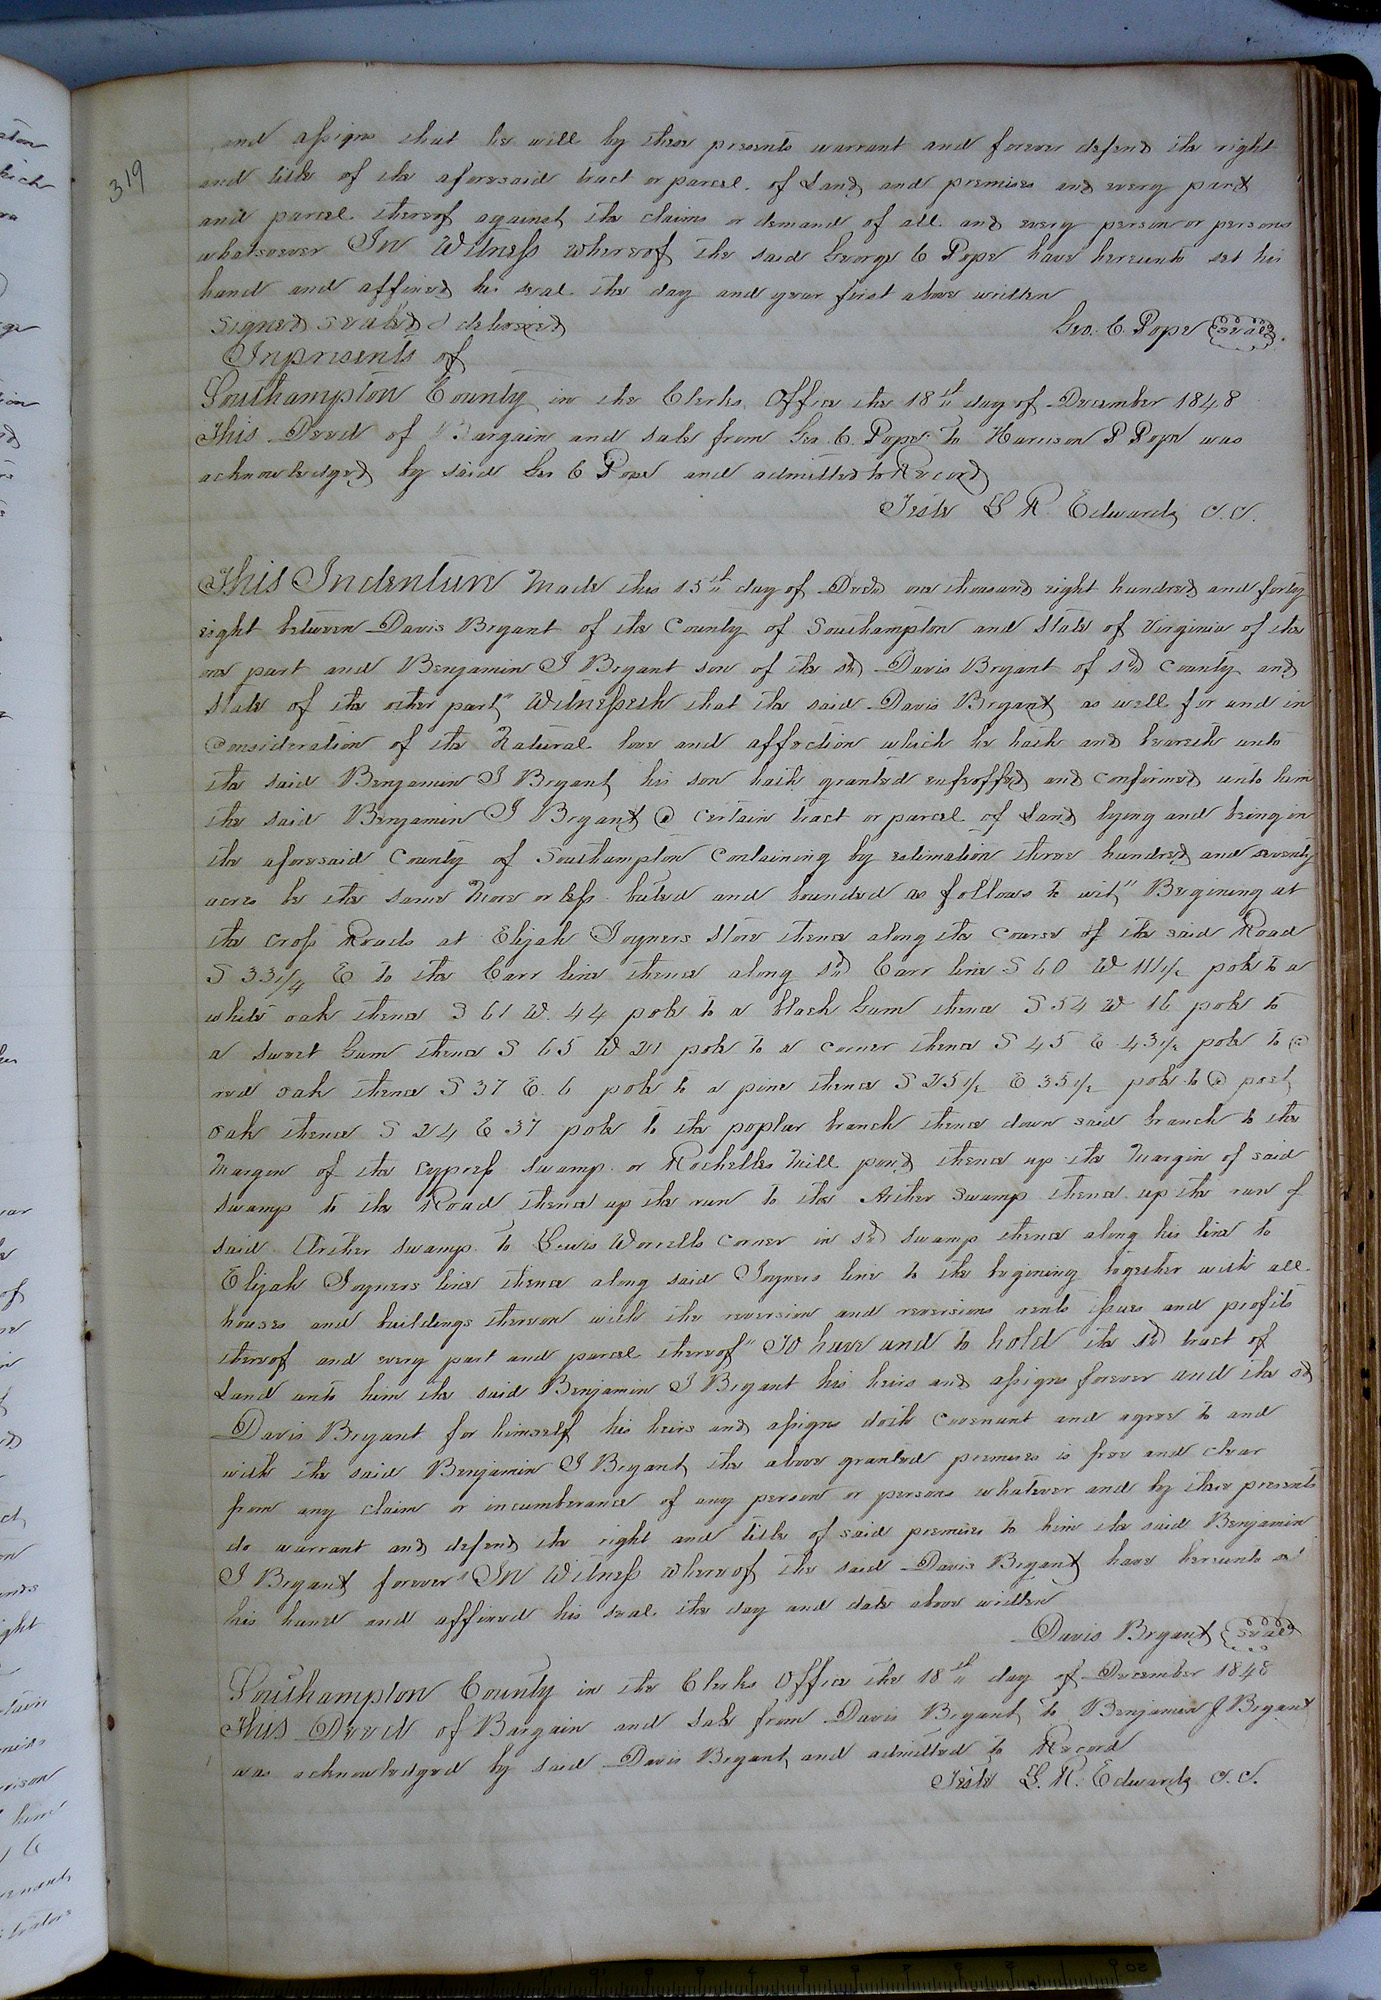 319
and assigns that he will by these presents warrant and forever defend the right
and title of the aforesaid tract or parcel of Land and premises and every part
and parcel thereof against the claims or demand of all and every person or persons
whatsoever In Witness whereof the said George C Pope have hereunto set his
hand and affixed his seal the day and year first above written
Signed Sealed & delivered
Geo. C. Pope Seal
Inpresents of
Southampton County in the Clerks Office the 18th day of December 1848
This Deed of Bargain and sale from Geo. C. Pope to Harrison P Pope was
acknowledged by said Geo C Pope and admitted to Record
Teste L R Edwards C.C.
This Indenture Made this 15th day of Decb one thousand eight hundred and forty
eight between Davis Bryant of the County of Southampton and State of Virginia of the
one part and Benjamin J Bryant son of the sd Davis Bryant of sd County and
State of the other part" Witnesseth that the said Davis Bryant as well for and in
Consideration of the Natural love and affection which he hath and beareth unto
the said Benjamin J Bryant his son hath granted enfeoffed and confirmed unto him
the said Benjamin J Bryant a certain tract or parcel of Land lying and being in
the aforesaid County of Southampton Containing by estimation three hundred and seventy
acres be the same More or less buted and bounded as follows to wit" Begining at
the cross Roads at Elijah Joyners Store thence along the course of the said Road
S 33 1/4 E to the Carr line thence along sd Carr line S 60 W 111 1/2 pole to a
white oak thence S 61 W. 44 pole to a black Gum thence S 54 W 16 pole to
a sweet Gum thence S 65 W 21 pole to a corner thence S 45 E 43 1/2 pole to a
red oak thence S 37 E. 6 pole to a pine thence S 25 1/2 E 35 1/2 pole to a post
oak thence S 24 E 37 pole to the poplar branch thence down said branch to the
Margin of the Cypress Swamp or Rochelles Mill pond thence up the Margin of said
swamp to the Road thence up the run to the Archer Swamp thence up the run of
said Archer swamp to Lewis Worrells corner in sd swamp thence along his line to
Elijah Joyners line thence along said Joyners line to the begining together with all
houses and buildings thereon with the reversion and reversions rents issues and profits
thereof and every part and parcel thereof" To have and to hold the sd tract of
Land unto him the said Benjamin J Bryant his heirs and assigns forever and the sd
Davis Bryant for himself his heirs and assigns doth covenant and agree to and
with the said Benjamin J Bryant the above granted premises is free and clear
from any claim or incumberance of any person or persons whatever and by these presents
do warrant and defend the right and title of said premises to him the said Benjamin
J Bryant forever" In Witness whereof the said Davis Bryant have hereunto set
his hand and affixed his seal the day and date above written
Davis Bryant Seal
Southampton County in the Clerks Office the 18th day of December 1848
This Deed of Bargain and Sale from Davis Bryant to Benjamin J Bryant
was acknowledged by said Davis Bryant and admitted to Record
Teste L. R. Edwards C.C.